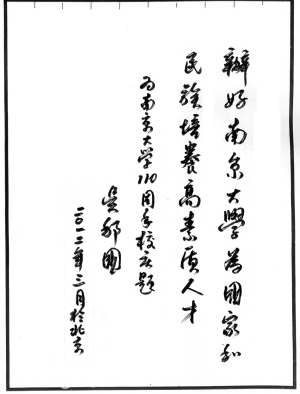 辦好南京大學為國家和
民族培養高素质人才
为南京大学110周年校庆题
吴邦國
二〇一二年三月於北京